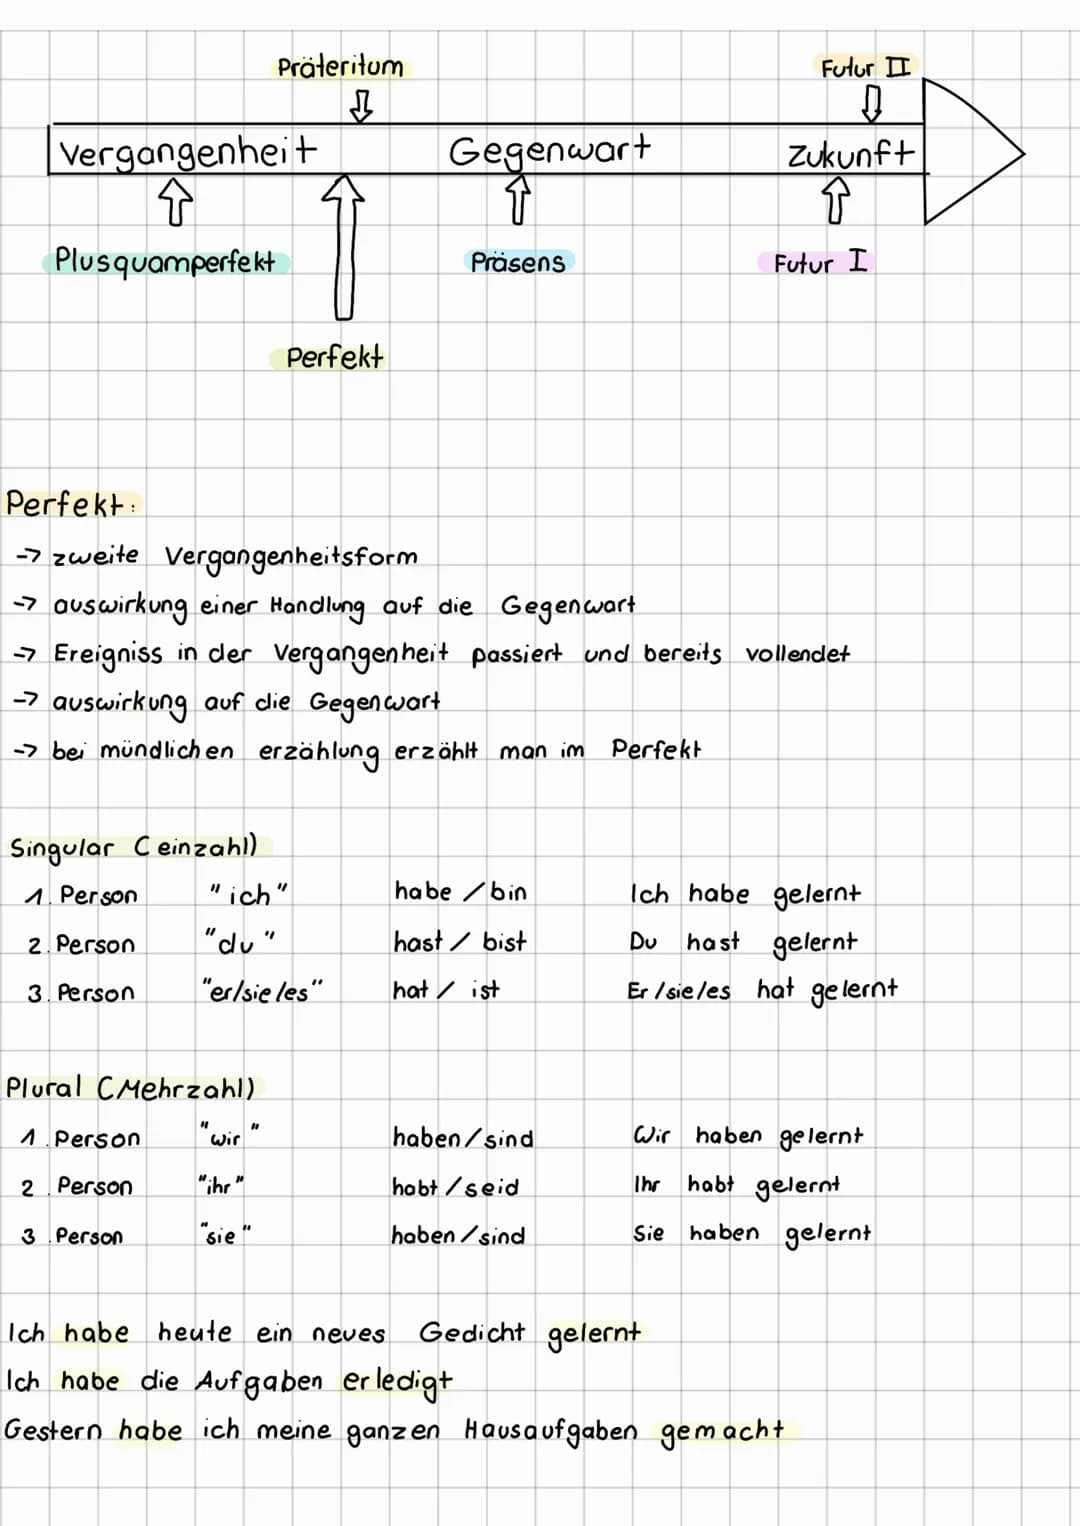 Präteritum Futur II
Vergangenheit Gegenwart Zukunft
Plusquamperfekt Präsens Futur I
Perfekt
Perfekt:
-> zweite Vergangenheitsform
-> auswirkung einer Handlung auf die Gegenwart
-> Ereigniss in der Vergangenheit passiert und bereits vollendet
-> auswirkung auf die Gegenwart
-> bei mündlichen erzählung erzählt man im Perfekt
Singular (einzahl)
1. Person "ich" habe / bin Ich habe gelernt
2. Person "du" hast / bist Du hast gelernt
3. Person "er/sie/es" hat / ist Er/sie/es hat gelernt
Plural (Mehrzahl)
1. Person "wir" haben/sind Wir haben gelernt
2. Person "ihr" habt /seid Ihr habt gelernt
3. Person "sie" haben/sind Sie haben gelernt
Ich habe heute ein neues Gedicht gelernt
Ich habe die Aufgaben erledigt
Gestern habe ich meine ganzen Hausaufgaben gemacht